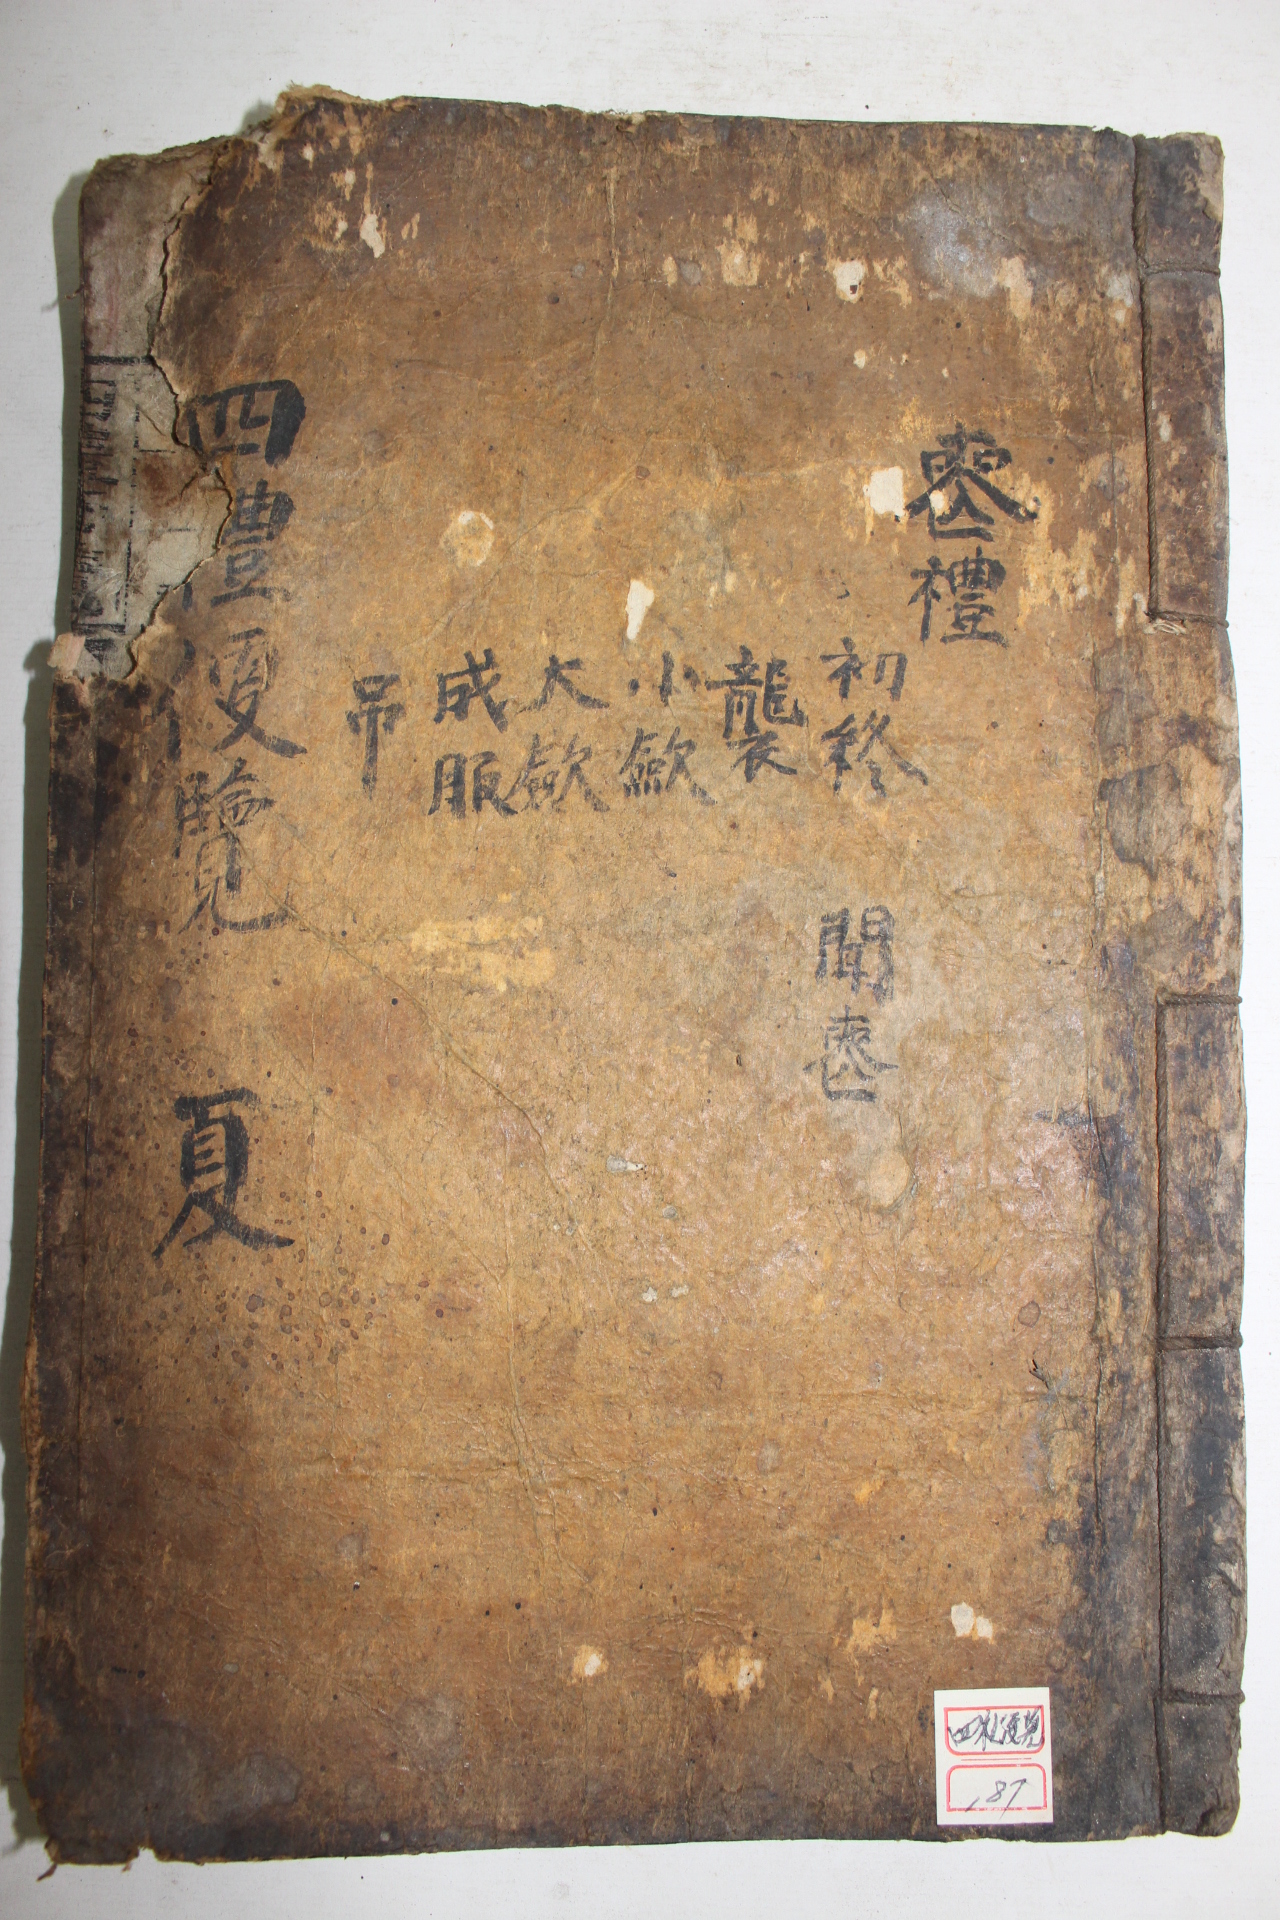 喪禮
初終 聞喪
襲
小斂
大斂
成服
吊
四禮便覽 夏
四礼便覧
187